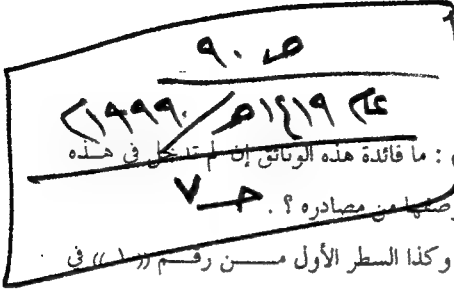 ص ٩٠
عام ١٤١٩هـ / ١٩٩٩٠م
: ما فائدة هذه الوثائق إن لم تدخل في هذه
حـ ٧
وصفها من مصادره ؟ .
وكذا السطر الأول مــن رقــم ((١)) في